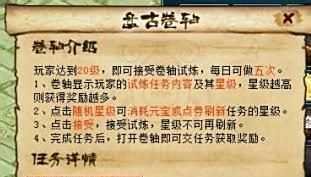 盘古卷轴
卷轴介绍
玩家达到20级，即可接受卷轴试炼，每日可做五次。
1、卷轴显示玩家的试炼任务内容及其星级，星级越高
则获得奖励越多。
2、点击随机星级可消耗元宝或点券刷新任务的星级。
3、点击接受，接受试炼，星级不可再刷新。
4、完成任务后，打开卷轴即可交任务获取奖励。
任务详情